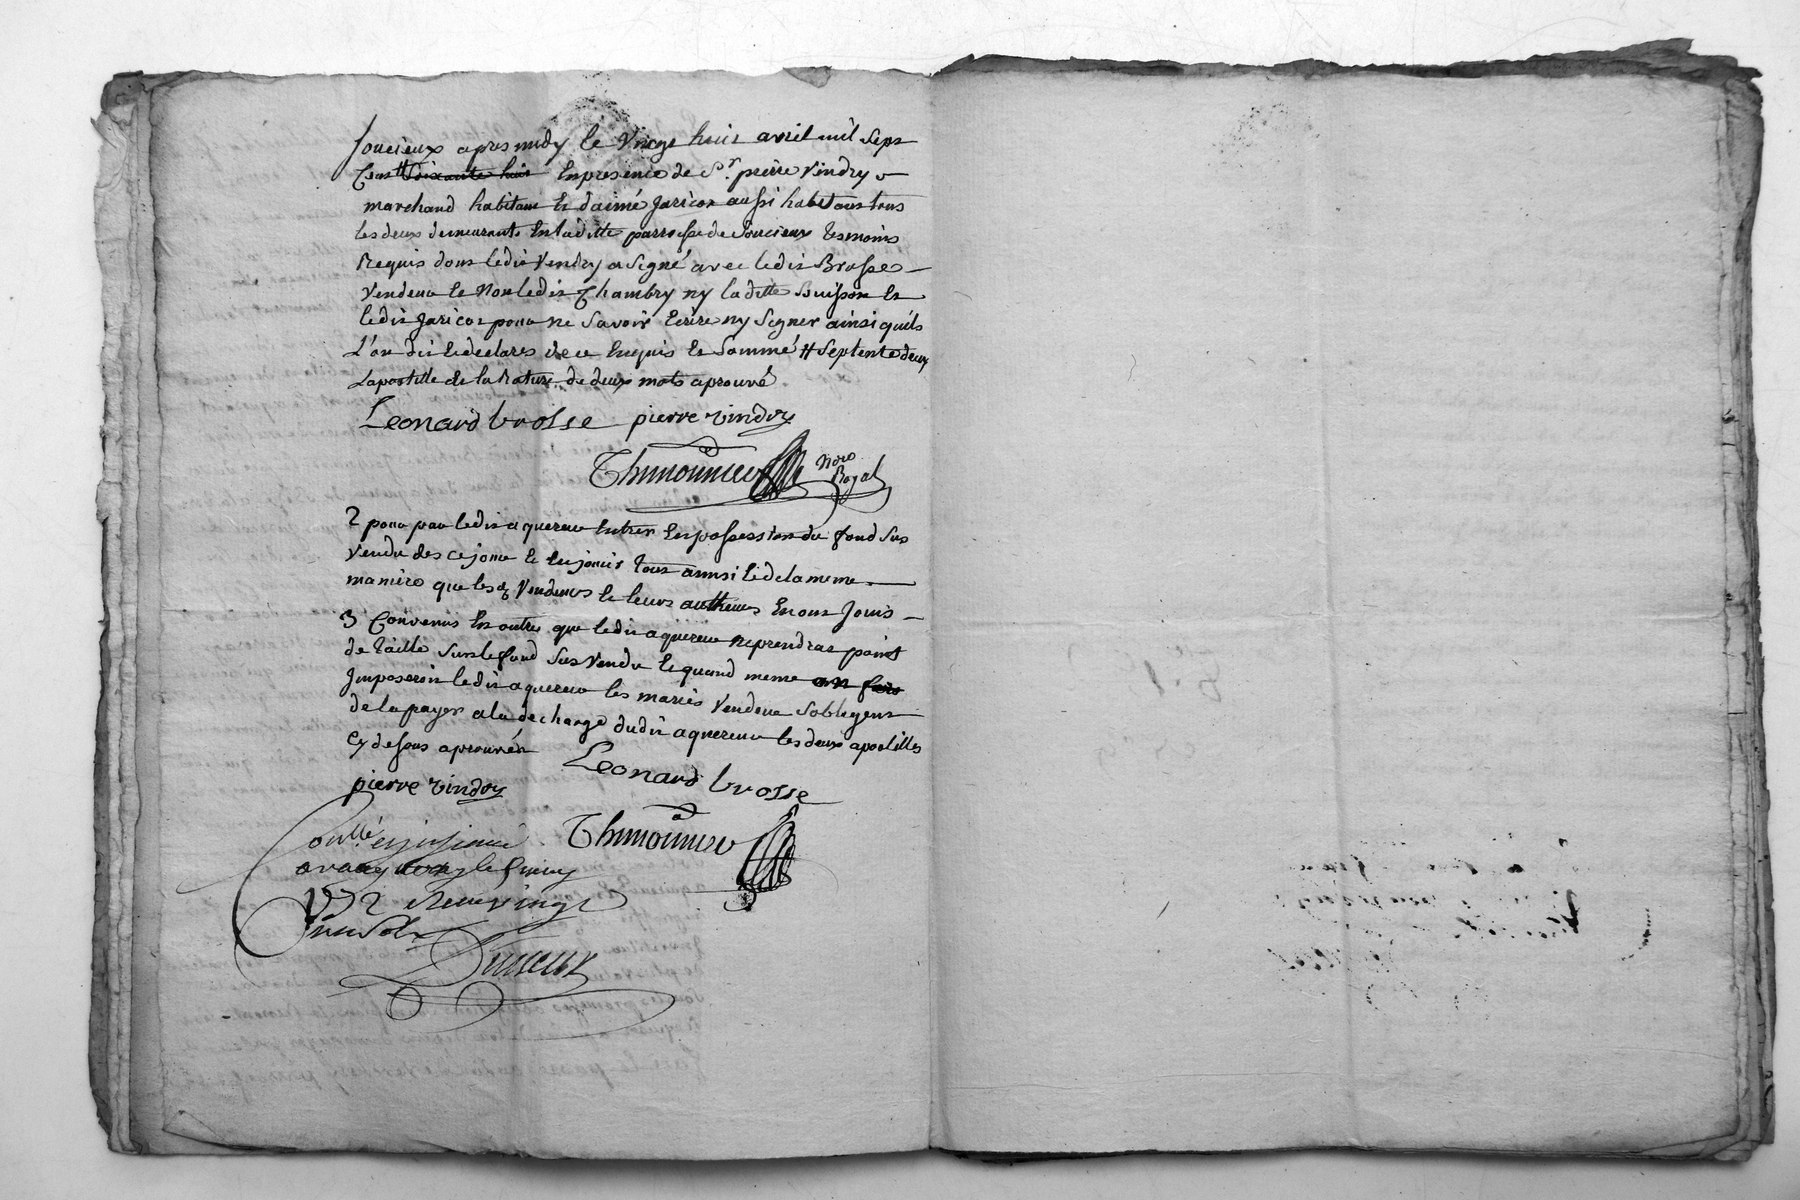 Soucieux apres midy le Vingt huit avril mil sept
Cent # Soixante huit En presence de Sr. pierre Vindry
marchand habitant Et d'aimé Jaricot aussi habitant tous
les deux demeurants En laditte parroisse de Soucieux temoins
Requis dont ledit Vendry a Signé avec ledit Brosse
Vendeur Et Non ledit Chambry ny laditte Buisson Et
ledit Jaricot pour ne Savoir Ecrire ny Signer ainsi quils
L'ont dit Et declaré de ce Enquis Et Sommé # Septente deux
Lapostille de la Rature de deux mots aprouvé
Leonard brosse pierre vindry
Thimonnier Notre
Royal
2 pour par ledit aquereur Entrer En possession du fond Sus
Vendu des ce jour Et En jouir tout ainsi Et de la meme
maniere que lesd Vendeurs Et leurs autheurs En ont Jouis
3 Convenus En outre que ledit aquereur ne prendrat point
de taille Sur le fond Sus Vendu Et quand meme on fut
Imposeroit ledit aquereur les mariés Vendeur Soblegent
de la payer a la decharge dudit aquereur les deux apostilles
Cy dessous aprouvés
Leonard brosse
pierre vindry
Thimonnier
Conllé
1772